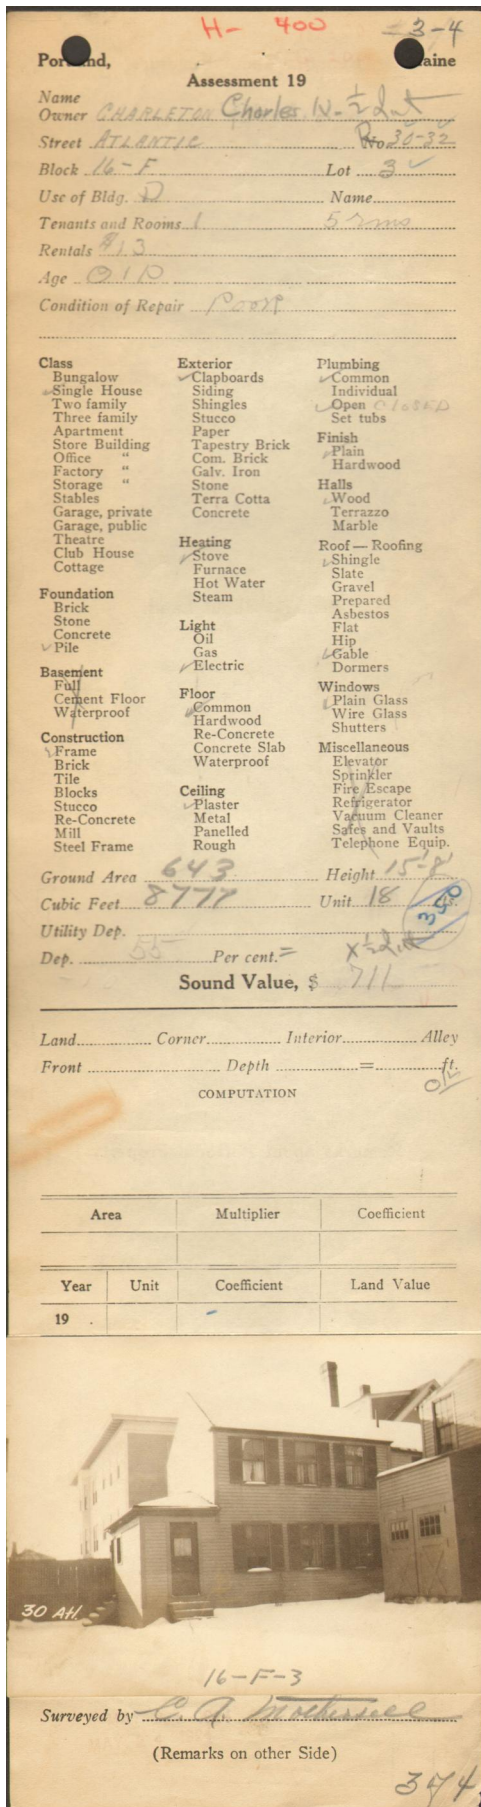 H- 400 = 3-4
Portland, Maine
Assessment 19
Name
Owner CHARLETON Charles N. ½ Int
Street ATLANTIC No 30-32
Block 16-F Lot 3
Use of Bldg. D Name
Tenants and Rooms 1 5 rms
Rentals $13
Age OLD
Condition of Repair POOR
Class
Bungalow
Single House
Two family
Three family
Apartment
Store Building
Office "
Factory "
Storage "
Stables
Garage, private
Garage, public
Theatre
Club House
Cottage
Foundation
Brick
Stone
Concrete
Pile
Basement
Full
Cement Floor
Waterproof
Construction
Frame
Brick
Tile
Blocks
Stucco
Re-Concrete
Mill
Steel Frame
Exterior
Clapboards
Siding
Shingles
Stucco
Paper
Tapestry Brick
Com. Brick
Galv. Iron
Stone
Terra Cotta
Concrete
Heating
Stove
Furnace
Hot Water
Steam
Light
Oil
Gas
Electric
Floor
Common
Hardwood
Re-Concrete
Concrete Slab
Waterproof
Ceiling
Plaster
Metal
Panelled
Rough
Plumbing
Common
Individual
Open CLOSED
Set tubs
Finish
Plain
Hardwood
Halls
Wood
Terrazzo
Marble
Roof — Roofing
Shingle
Slate
Gravel
Prepared
Asbestos
Flat
Hip
Gable
Dormers
Windows
Plain Glass
Wire Glass
Shutters
Miscellaneous
Elevator
Sprinkler
Fire Escape
Refrigerator
Vacuum Cleaner
Safes and Vaults
Telephone Equip.
Ground Area 643 Height 15-8
Cubic Feet 8777 Unit 18 cts.
350
Utility Dep.
Dep. 55 Per cent. = x ½ Int
Sound Value, $ 711
Land Corner Interior Alley
Front Depth = ft.
COMPUTATION
Area Multiplier Coefficient
Year Unit Coefficient Land Value
19 .
30 Atl.
16-F-3
Surveyed by C. A.
(Remarks on other Side)
374